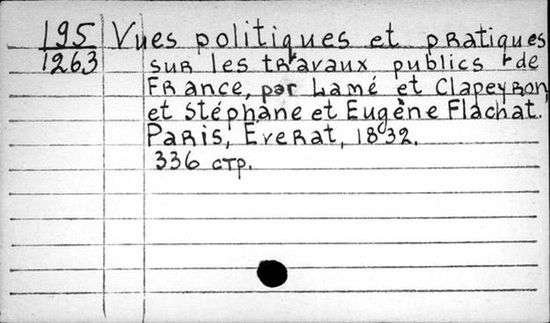 195 Vues politiques et pratiques
1263 sur les travaux publics de
France, par Lamé et Clapeyron,
et Stéphane et Eugène Flachat.
Paris, Éverat, 1832.
336 стр.